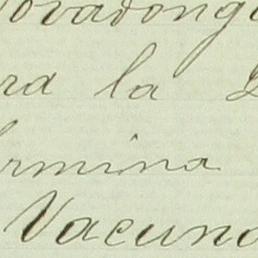 ovadong
ra la
rmina
Vacuna